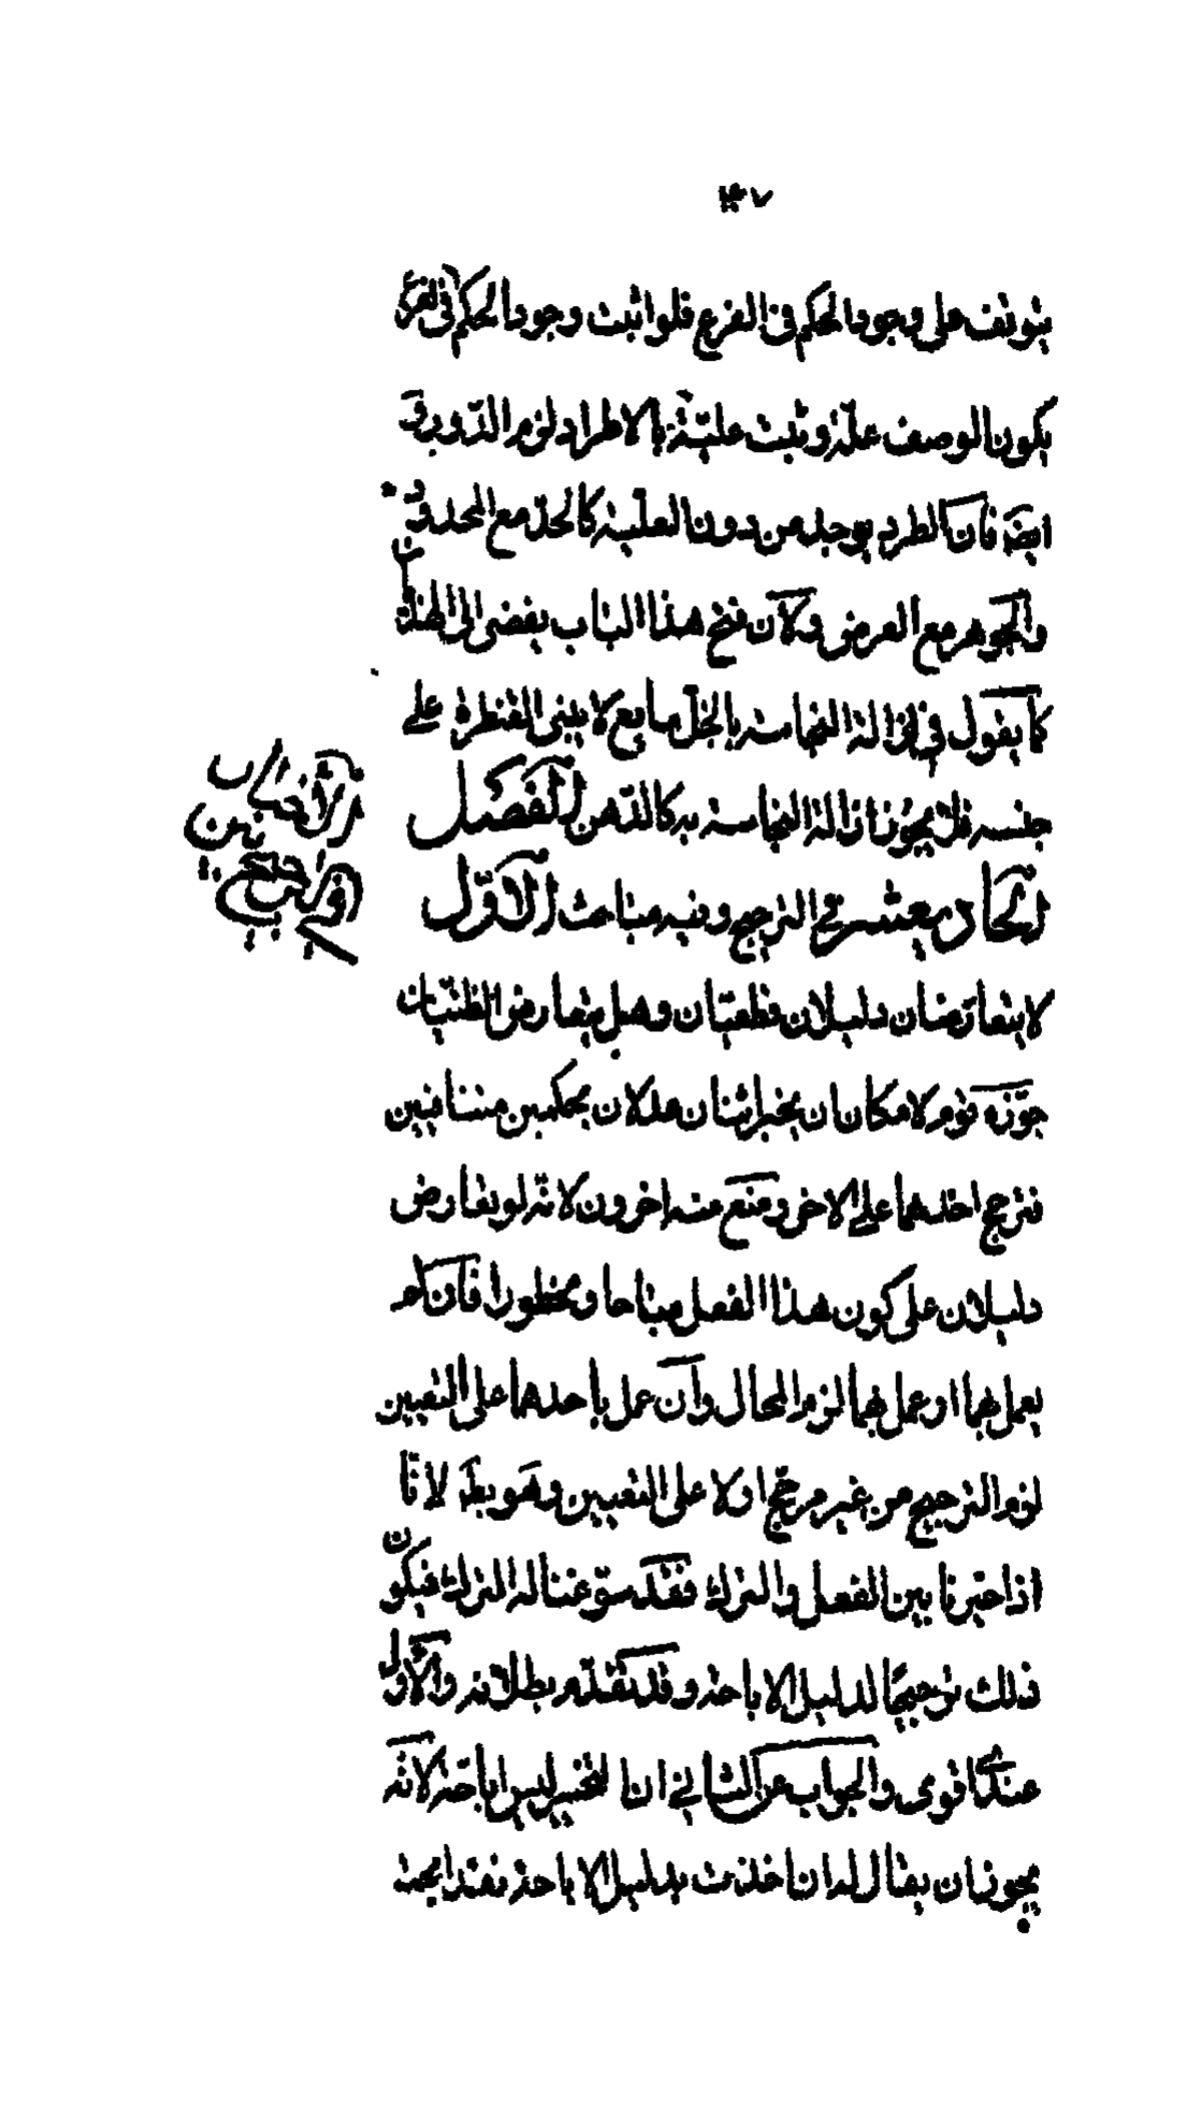 ٤٧
يتوقف على وجود الحكم في الفرع فلو اثبت وجود الحكم في الفرع
بكون الوصف علة وثبت عليته بالاطراد لزم الدور و
ايضا فان الطرد يوجد من دون العلية كالحد مع المحدود
والجوهر مع العرض ولان فتح هذا الباب يفضي الى الهذيان
كما يقول في ازالة النجاسة بالخل مايع لا يبنى القنطرة على
جنسه فلا يجوز ازالة النجاسة به كالدهن الفصل
الحاديعشر في الترجيح وفيه مباحث الاول
لا يتعارضان دليلان قطعيان وهل يتعارض الظنيان
جوزه قوم لامكان ان يخبر اثنان عدلان بحكمين متنافيين
فترجح احدهما على الاخر ومنع منه اخرون لانه لو تعارض
دليلان على كون هذا الفعل مباحا ومحظورا فان لم
يعمل بهما او عمل بهما لزم المحال وان عمل باحدهما على التعيين
لزم الترجيح من غير مرجح او لا على التعيين وهو بط لانا
اذا خيرنا بين الفعل والترك فقد سوغنا له الترك فيكون
ذلك ترجيحا لدليل الاباحة وقد تقدم بطلانه والاول
عندي اقوى والجواب عن الثاني ان التخيير ليس اباحة لانه
يجوز ان يقال له ان اخذت بدليل الاباحة فقد ابحت